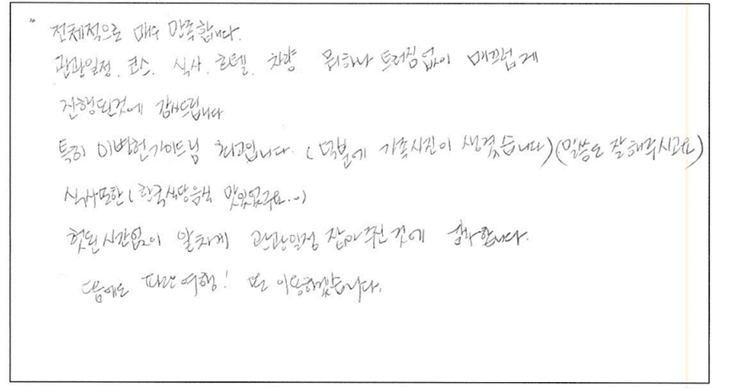 " 전체적으로 매우 만족합니다.
관광일정. 코스. 식사. 호텔. 차량 뭐하나 트러짐없이 매끄럽게
진행된것에 감사드립니다
특히 이병헌가이드님 최고입니다. (덕분에 가족사진이 생겼습니다) (말씀도 잘해주시고요)
식사또한 (한국식당음식 맛있었구요..)
헛된시간없이 알차게 관광일정 잡아주신 것에 감사합니다.
다음에도 파란여행! 또 이용하겠습니다.